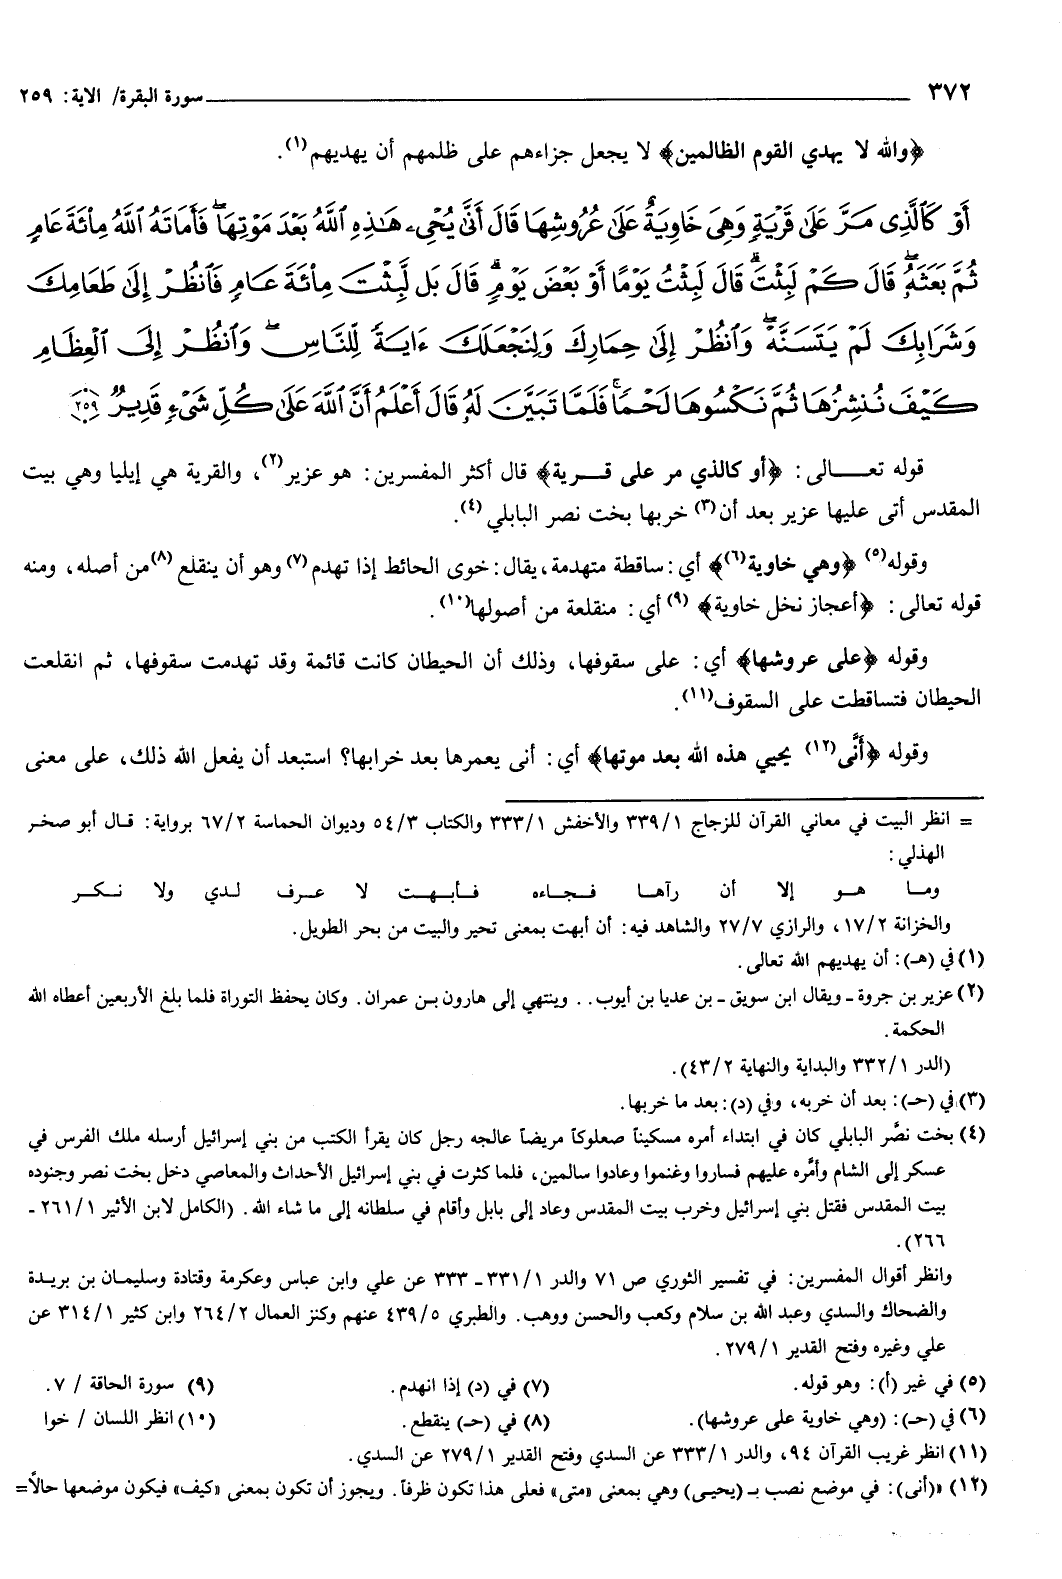 ٣٧٢ سورة البقرة/ الآية: ٢٥٩
﴿والله لا يهدي القوم الظالمين﴾ لا يجعل جزاءهم على ظلمهم أن يهديهم(١).
أَوْ كَٱلَّذِى مَرَّ عَلَىٰ قَرْيَةٍ وَهِىَ خَاوِيَةٌ عَلَىٰ عُرُوشِهَا قَالَ أَنَّىٰ يُحْىِۦ هَـٰذِهِ ٱللَّهُ بَعْدَ مَوْتِهَاۖ فَأَمَاتَهُ ٱللَّهُ مِا۟ئَةَ عَامٍ
ثُمَّ بَعَثَهُۥۖ قَالَ كَمْ لَبِثْتَۖ قَالَ لَبِثْتُ يَوْمًا أَوْ بَعْضَ يَوْمٍۖ قَالَ بَل لَّبِثْتَ مِا۟ئَةَ عَامٍ فَٱنظُرْ إِلَىٰ طَعَامِكَ
وَشَرَابِكَ لَمْ يَتَسَنَّهْۖ وَٱنظُرْ إِلَىٰ حِمَارِكَ وَلِنَجْعَلَكَ ءَايَةً لِّلنَّاسِۖ وَٱنظُرْ إِلَى ٱلْعِظَامِ
كَيْفَ نُنشِزُهَا ثُمَّ نَكْسُوهَا لَحْمًاۚ فَلَمَّا تَبَيَّنَ لَهُۥ قَالَ أَعْلَمُ أَنَّ ٱللَّهَ عَلَىٰ كُلِّ شَىْءٍ قَدِيرٌ ٢٥٩
قوله تعـــالى: ﴿أو كالذي مر على قـــرية﴾ قال أكثر المفسرين: هو عزير(٢)، والقرية هي إيليا وهي بيت
المقدس أتى عليها عزير بعد أن(٣) خربها بخت نصر البابلي(٤).
وقوله(٥) ﴿وهي خاوية(٦)﴾ أي: ساقطة متهدمة، يقال: خوى الحائط إذا تهدم(٧) وهو أن ينقلع(٨) من أصله، ومنه
قوله تعالى: ﴿أعجاز نخل خاوية﴾(٩) أي: منقلعة من أصولها(١٠).
وقوله ﴿على عروشها﴾ أي: على سقوفها، وذلك أن الحيطان كانت قائمة وقد تهدمت سقوفها، ثم انقلعت
الحيطان فتساقطت على السقوف(١١).
وقوله ﴿أَنَّى(١٢) يحيي هذه الله بعد موتها﴾ أي: أنى يعمرها بعد خرابها؟ استبعد أن يفعل الله ذلك، على معنى
= انظر البيت في معاني القرآن للزجاج ٣٣٩/١ والأخفش ٣٣٣/١ والكتاب ٥٤/٣ وديوان الحماسة ٦٧/٢ برواية: قـال أبو صخـر
الهذلي:
ومـا هـو إلا أن رآهـا فـجـاءه فـأبـهـت لا عـرف لـدي ولا نـكـر
والخزانة ١٧/٢، والرازي ٢٧/٧ والشاهد فيه: أن أبهت بمعنى تحير والبيت من بحر الطويل.
(١) في (هـ): أن يهديهم الله تعالى.
(٢) عزير بن جروة ـ ويقال ابن سويق ـ بن عديا بن أيوب.. وينتهي إلى هارون بـن عمران. وكان يحفظ التوراة فلما بلغ الأربعين أعطاه الله
الحكمة.
(الدر ٣٣٢/١ والبداية والنهاية ٤٣/٢).
(٣) في (حـ): بعد أن خربه، وفي (د): بعد ما خربها.
(٤) بخت نصَّر البابلي كان في ابتداء أمره مسكيناً صعلوكاً مريضاً عالجه رجل كان يقرأ الكتب من بني إسرائيل أرسله ملك الفرس في
عسكر إلى الشام وأمَّره عليهم فساروا وغنموا وعادوا سالمين، فلما كثرت في بني إسرائيل الأحداث والمعاصي دخل بخت نصر وجنوده
بيت المقدس فقتل بني إسرائيل وخرب بيت المقدس وعاد إلى بابل وأقام في سلطانه إلى ما شاء الله. (الكامل لابن الأثير ٢٦١/١ ـ
٢٦٦).
وانظر أقوال المفسرين: في تفسير الثوري ص ٧١ والدر ٣٣١/١ ـ ٣٣٣ عن علي وابن عباس وعكرمة وقتادة وسليمـان بن بريـدة
والضحاك والسدي وعبد الله بن سلام وكعب والحسن ووهب. والطبري ٤٣٩/٥ عنهم وكنز العمال ٢٦٤/٢ وابن كثير ٣١٤/١ عن
علي وغيره وفتح القدير ٢٧٩/١.
(٥) في غير (أ): وهو قوله. (٧) في (د) إذا انهدم. (٩) سورة الحاقة / ٧.
(٦) في (حـ): (وهي خاوية على عروشها). (٨) في (حـ) ينقطع. (١٠) انظر اللسان / خوا
(١١) انظر غريب القرآن ٩٤، والدر ٣٣٣/١ عن السدي وفتح القدير ٢٧٩/١ عن السدي.
(١٢) «(أنى): في موضع نصب بـ (يحيـى) وهي بمعنى «متى» فعلى هذا تكون ظرفاً. ويجوز أن تكون بمعنى «كيف» فيكون موضعها حالاً=